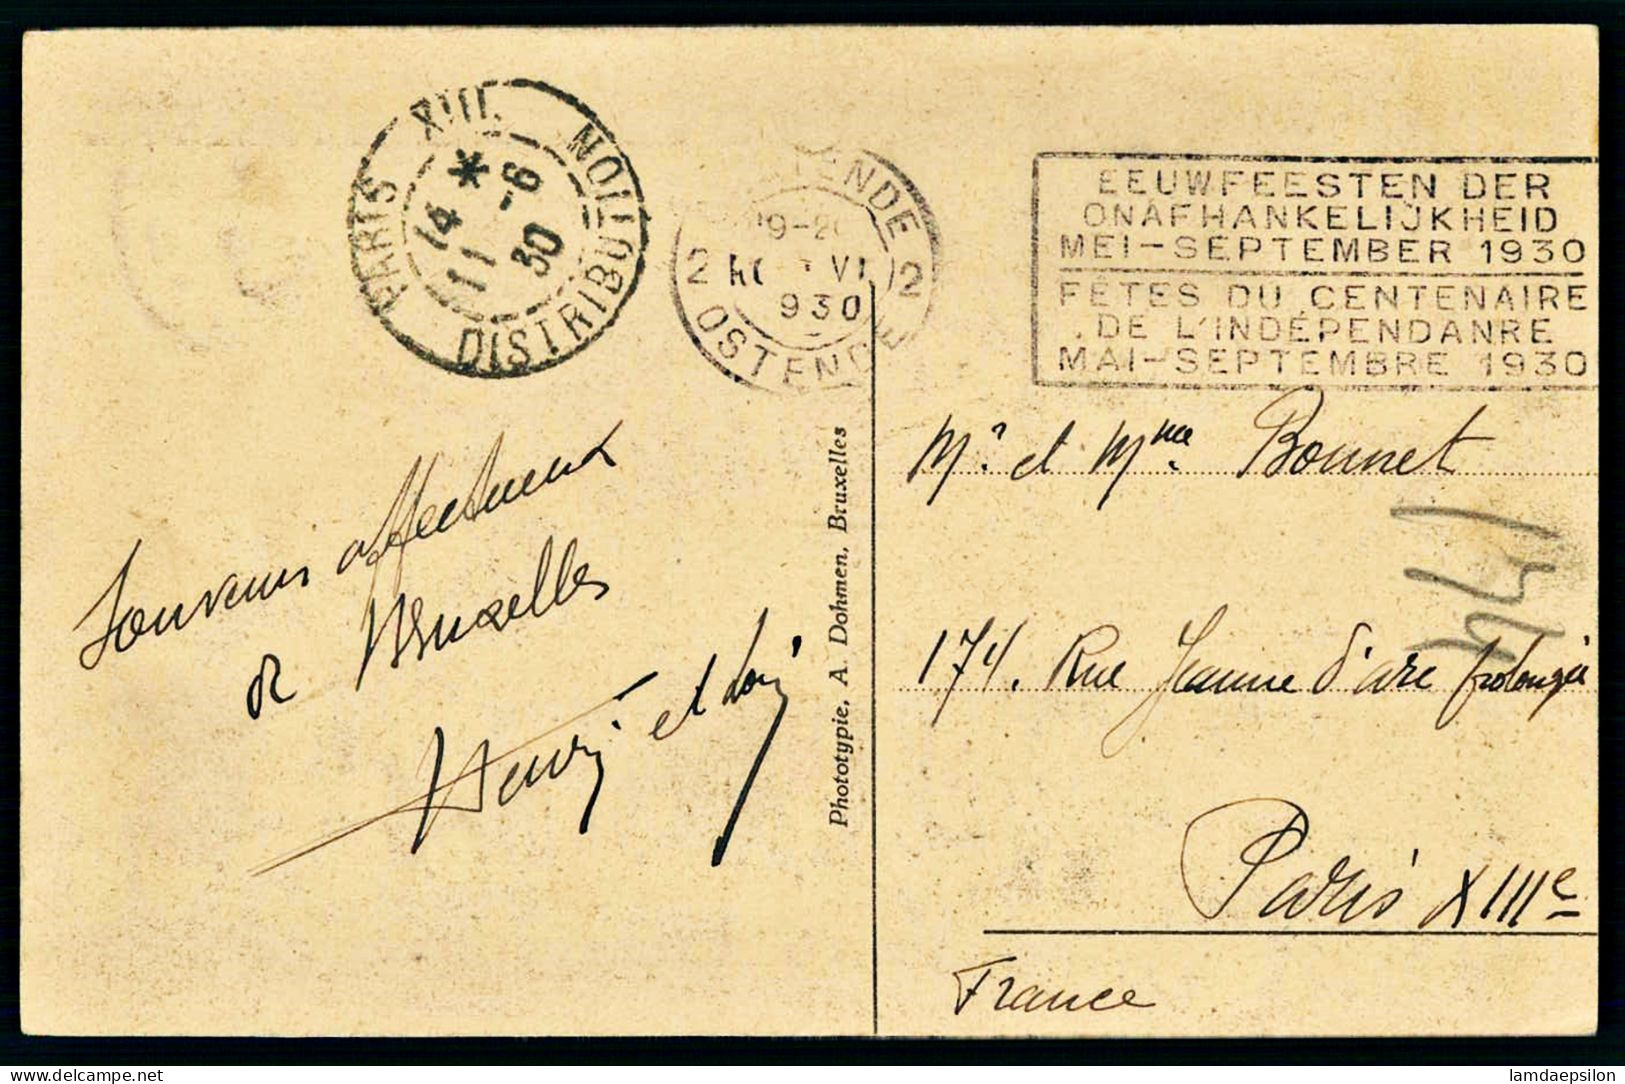 PARIS XIII
DISTRIBUTION
*
14
11 -6
30
OSTENDE
19-20
2 VI 2
930
OSTENDE
EEUWFEESTEN DER
ONAFHANKELIJKHEID
MEI-SEPTEMBER 1930
FÊTES DU CENTENAIRE
DE L'INDÉPENDANRE
MAI-SEPTEMBRE 1930
Souvenirs affectueux
de Bruxelles
Henri et
Phototypie, A. Dohmen, Bruxelles
Mr. et Mme. Bonnet
174. Rue Jeanne d'arc prolongée
Paris XIIIe
France
lamdaepsilon